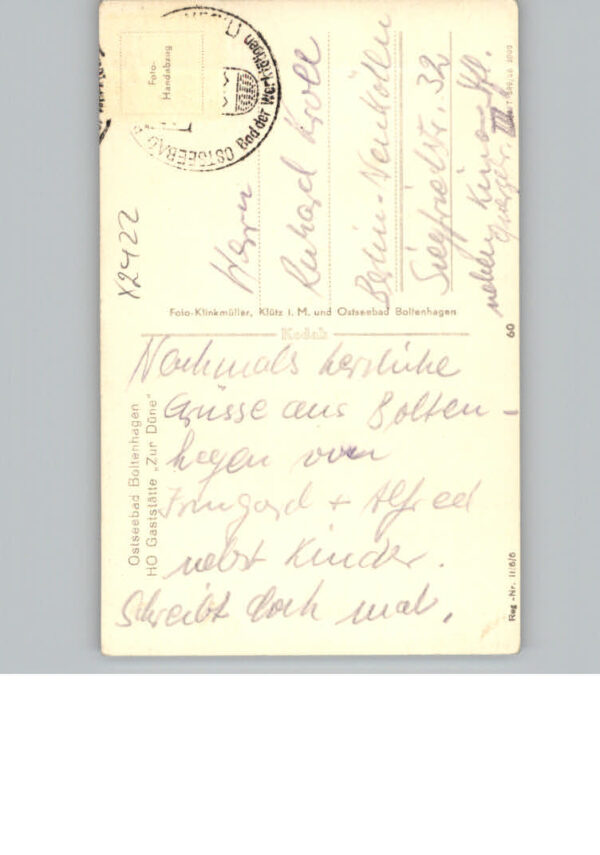 Foto-
Handabzug
OSTSEEBAD
Bad der Werktätigen
X2422
Herrn
Richard Kroll
Berlin-Neukölln
Siegfriedstr. 32
neben Kino
III
Foto-Klinkmüller, Klütz i. M. und Ostseebad Boltenhagen
Kodak
60
Nochmals herzliche
Grüsse aus Bolten-
hagen von
Irmgard + Alfred
nebst Kinder.
Schreibt doch mal.
Ostseebad Boltenhagen
HO Gaststätte „Zur Düne"
Reg.-Nr. II/6/6